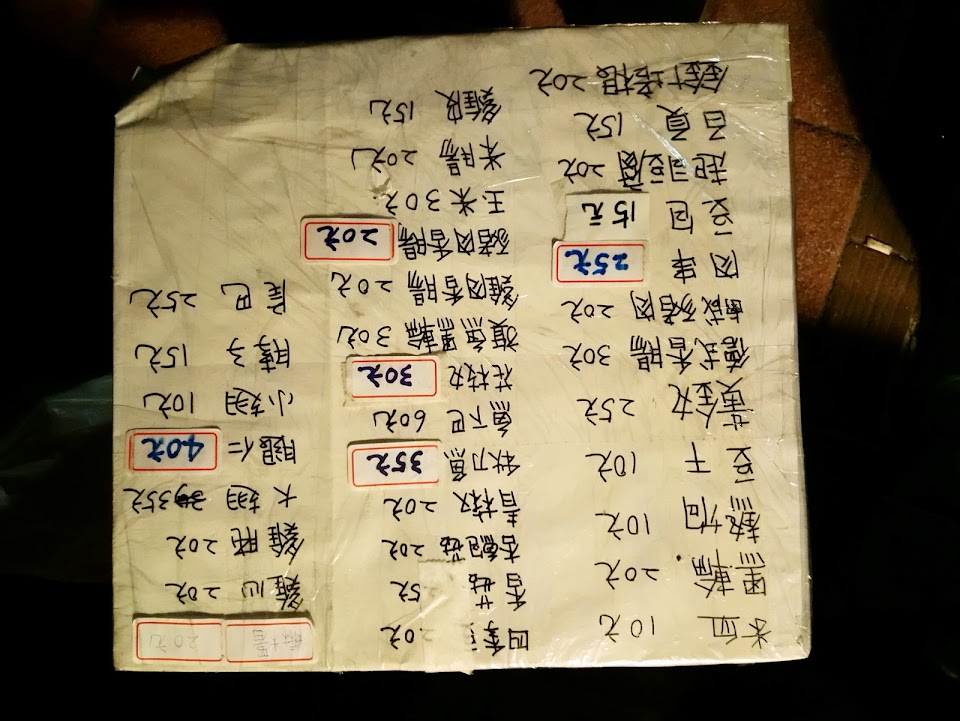 米血 10元
黑輪 20元
熱狗 10元
豆干 10元
黃金丸 25元
德式香腸 30元
鹹豬肉 20元
肉串 25元
豆包 15元
起司豆腐 20元
百頁 15元
金針培根 20元
四季
香菇 5元
杏鮑菇 20元
青椒 20元
秋刀魚 35元
魚下巴 60元
花枝丸 30元
旗魚黑輪 30元
雞肉香腸 20元
豬肉香腸 20元
玉米 30元
米腸 20元
雞皮 15元
20元
雞心 20元
雞肫 20元
大翅 35元
腿仁 40元
小翅 10元
脖子 15元
尾巴 25元